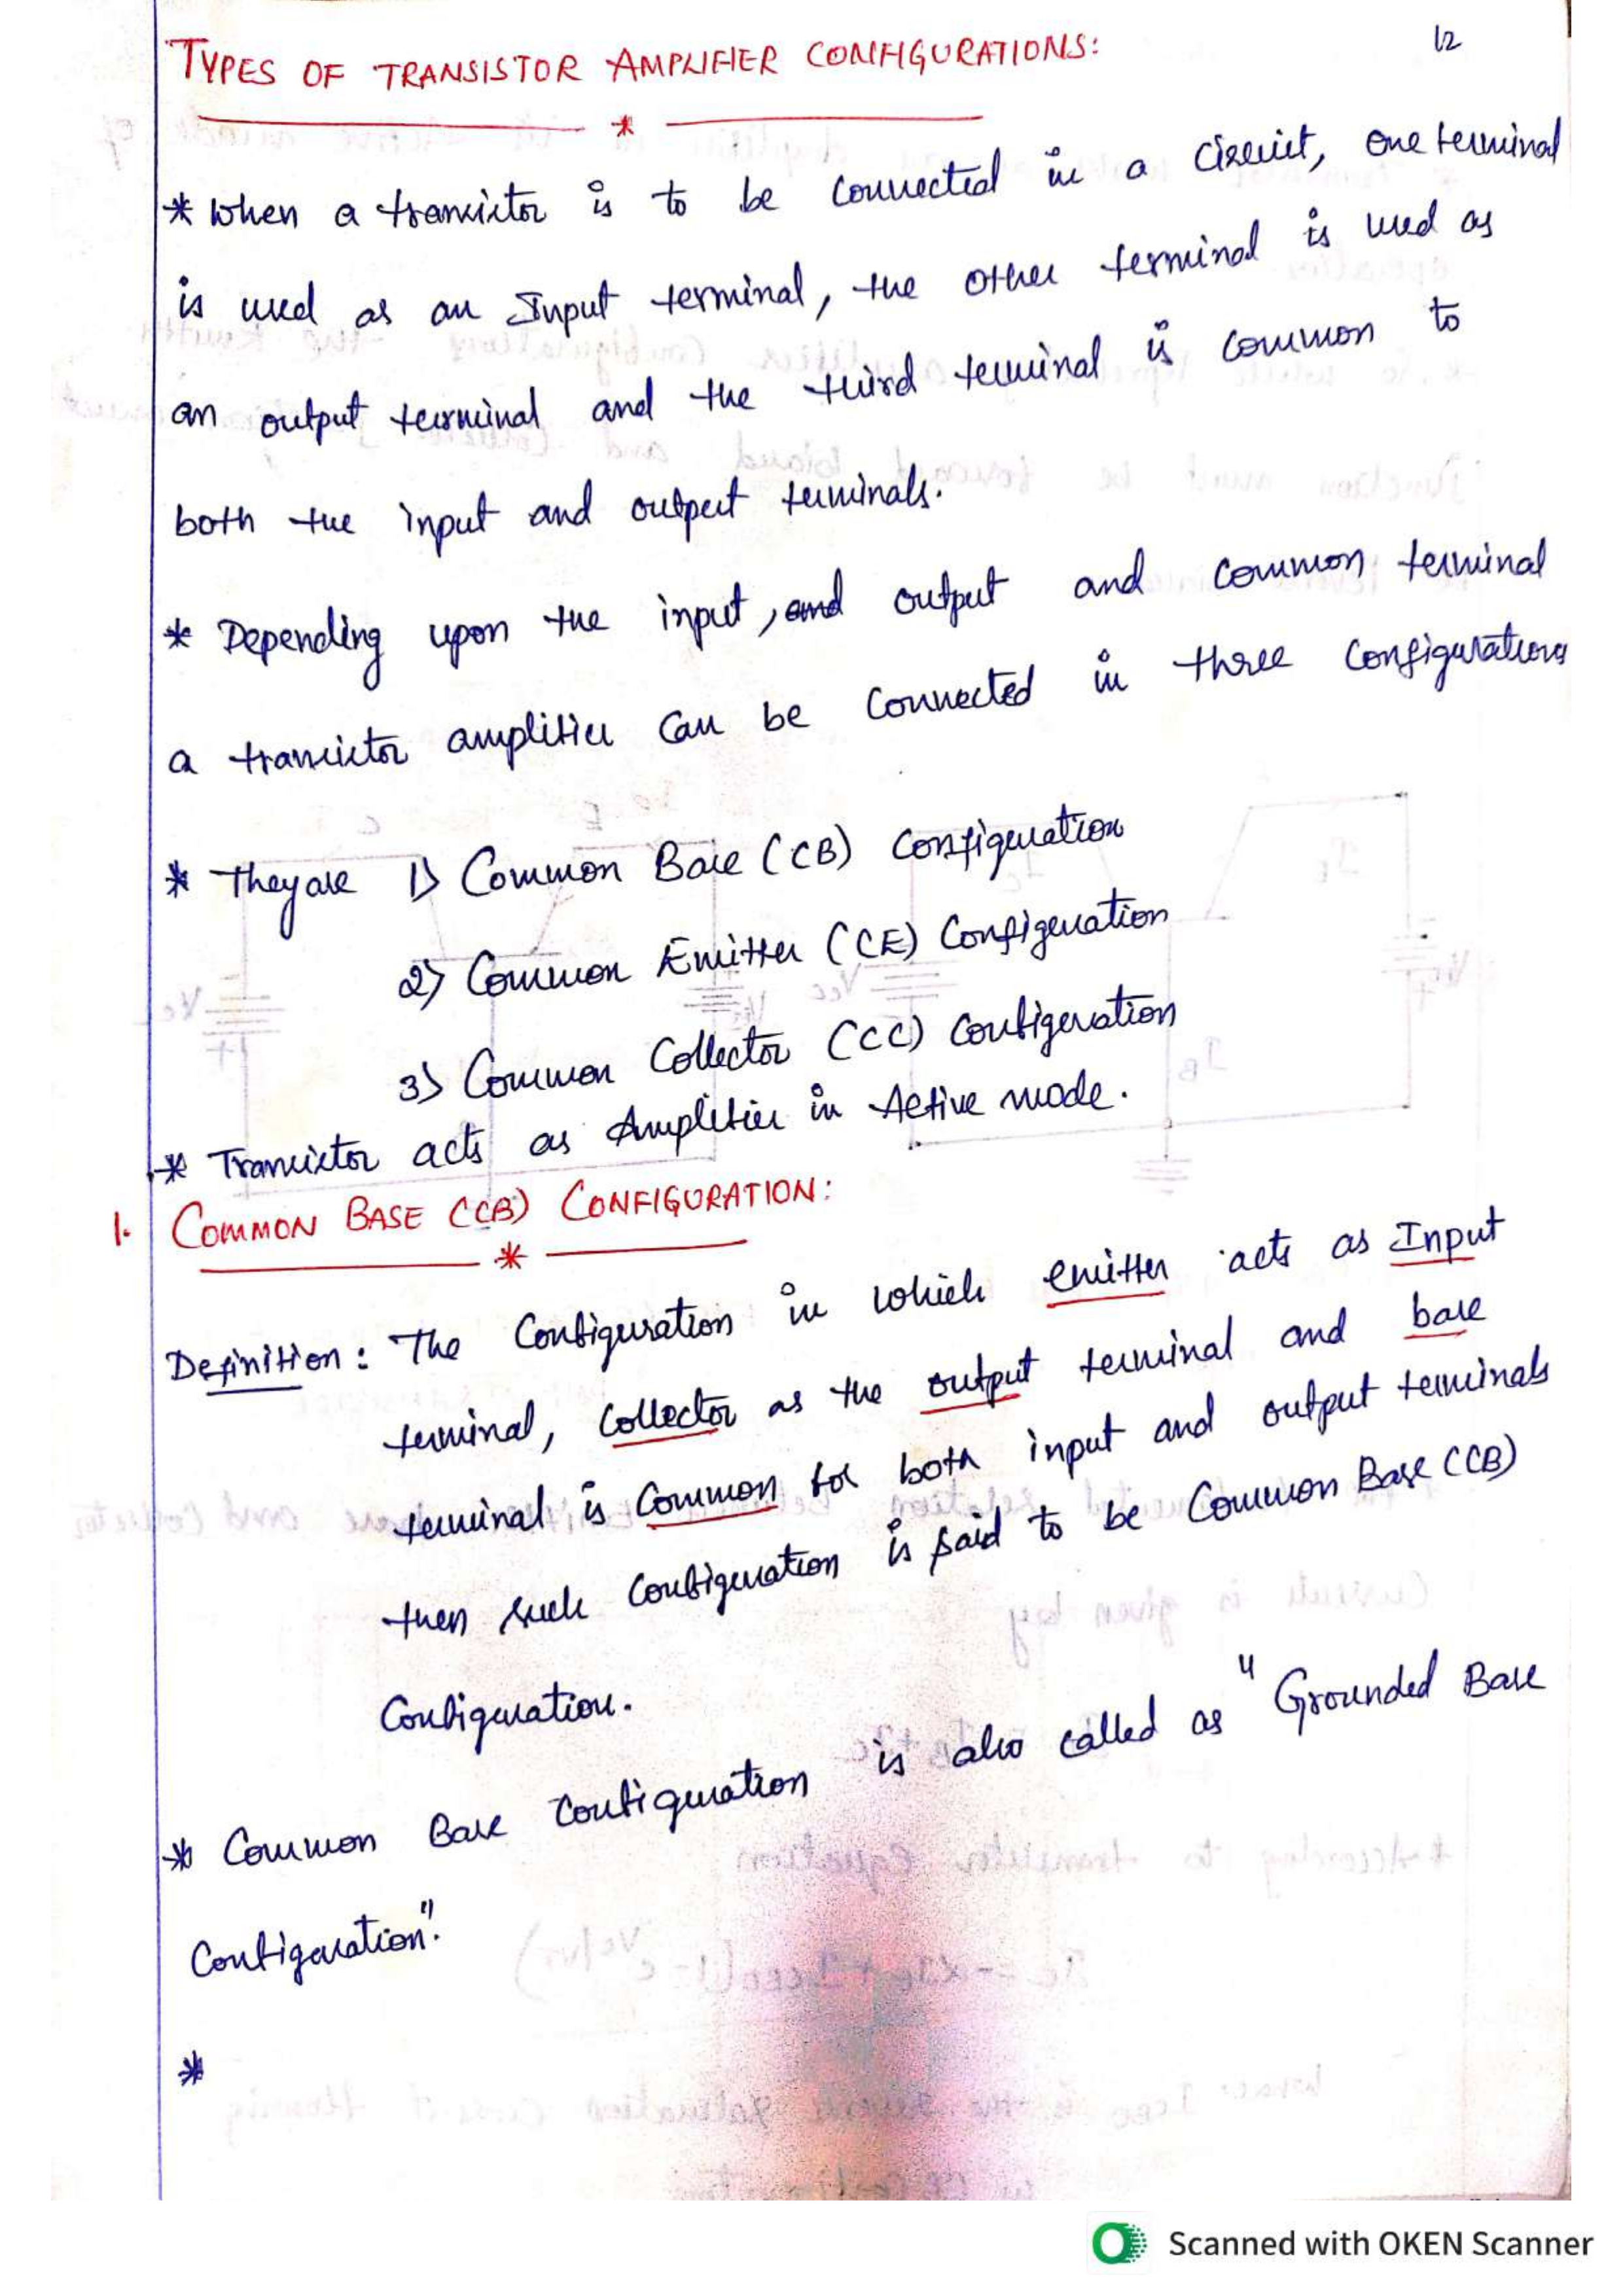 12
TYPES OF TRANSISTOR AMPLIFIER CONFIGURATIONS:
* When a transistor is to be connected in a circuit, one terminal
is used as an Input terminal, the other terminal is used as
an output terminal and the third terminal is common to
both the input and output terminals.
* Depending upon the input, and output and common terminal
a transistor amplifier can be connected in three configurations
* They are 1) Common Base (CB) configuration
2) Common Emitter (CE) Configuration
3) Common Collector (CC) configuration
* Transistor acts as Amplifier in Active mode.
1. COMMON BASE (CB) CONFIGURATION:
Definition: The Configuration in which emitter acts as Input
terminal, collector as the output terminal and base
terminal is common for both input and output terminals
then such configuration is said to be Common Base (CB)
Configuration.
* Common Base configuration is also called as "Grounded Base
Configuration".
*
Scanned with OKEN Scanner